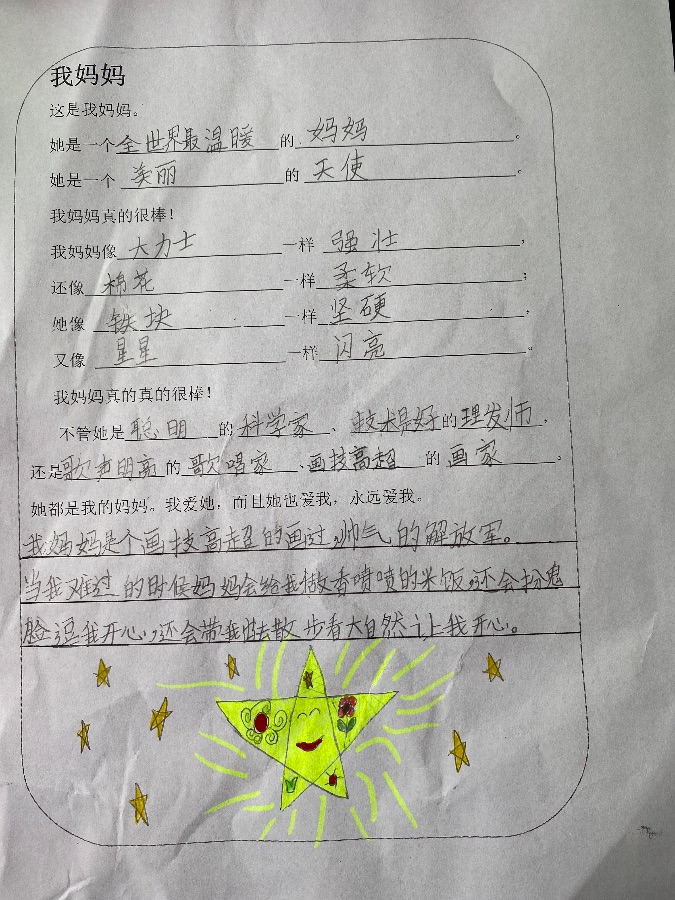 我妈妈
这是我妈妈。
她是一个全世界最温暖的妈妈。
她是一个美丽的天使。
我妈妈真的很棒！
我妈妈像大力士一样强壮，
还像棉花一样柔软；
她像铁块一样坚硬，
又像星星一样闪亮。
我妈妈真的真的很棒！
不管她是聪明的科学家、技术最好的理发师，
还是歌声明亮的歌唱家、画技高超的画家，
她都是我的妈妈。我爱她，而且她也爱我，永远爱我。
我妈妈是个画技高超的画过，帅气的解放军。
当我难过的时候妈妈会给我做香喷喷的米饭，还会扮鬼
脸逗我开心，还会带我出去散步看大自然让我开心。